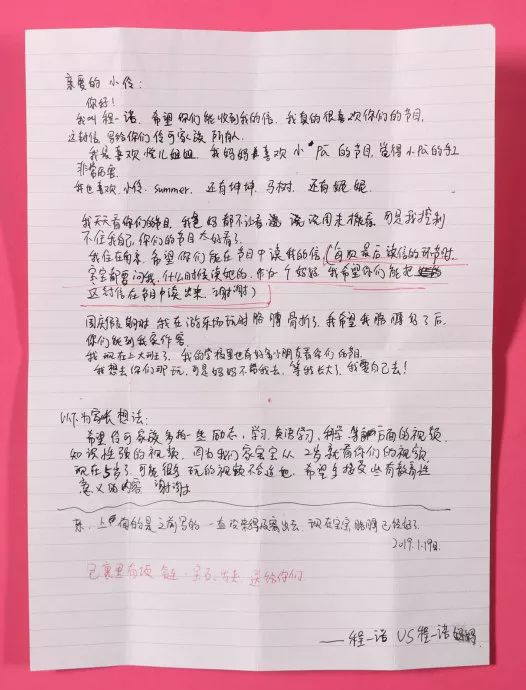 亲爱的 小伶：
你好！
我叫程一诺，希望你们能收到我的信，我真的很喜欢你们的节目，
这封信 写给你们伶可家族 所有人
我最喜欢 悦儿姐姐，我妈妈喜欢 小瓜 的节目，觉得小瓜的手工
非常厉害
我也喜欢 小伶、summer、还有坤坤，马树，还有妮妮，
我天天看你们的节目，我爸妈都不让看 说周末 可是我控制
不住我自己，你们的节目太好看了。
我住在南京，希望你们能在节目中读我的信，（每次最后读信的环节时，
宝宝都要问我，什么时候读她的，作为一个妈妈 我希望你们能把
这封信在节目中读出来，谢谢）
国庆假期时 我在游乐场玩时胳膊骨折了，我希望我胳膊好了后，
你们能到我家作客
我现在上大班了，我的学校里也有好多小朋友看你们的节目
我想去你们那玩，可是妈妈不带我去，等我长大了，我要自己去！
以下为家长想法：
希望伶可家族多拍一些 励志，学习，英语学习，科学 等方面的视频
知识性强的视频，因为我们家宝宝从 2岁就看你们的视频
现在5岁了，可能很多 玩的视频不合适她，希望多接受些有教育性
意义的内容 谢谢
上面的是之前写的 一直没来得及寄出去，现在宝宝 胳膊已经好了
2019.1.19日.
包裹里有项链、宝石、 送给你们
——程一诺 VS程一诺妈妈